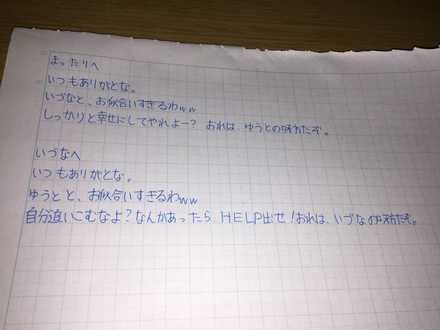 まったりへ
いつもありがとな。
いづなと、お似合いすぎるわww
しっかりと幸せにしてやれよー？おれは、ゆうとの味方だぞ。
いづなへ
いつもありがとな。
ゆうとと、お似合いすぎるわww
自分追いこむなよ？なんかあったらHELP出せ！おれは、いづなの味方だぞ。